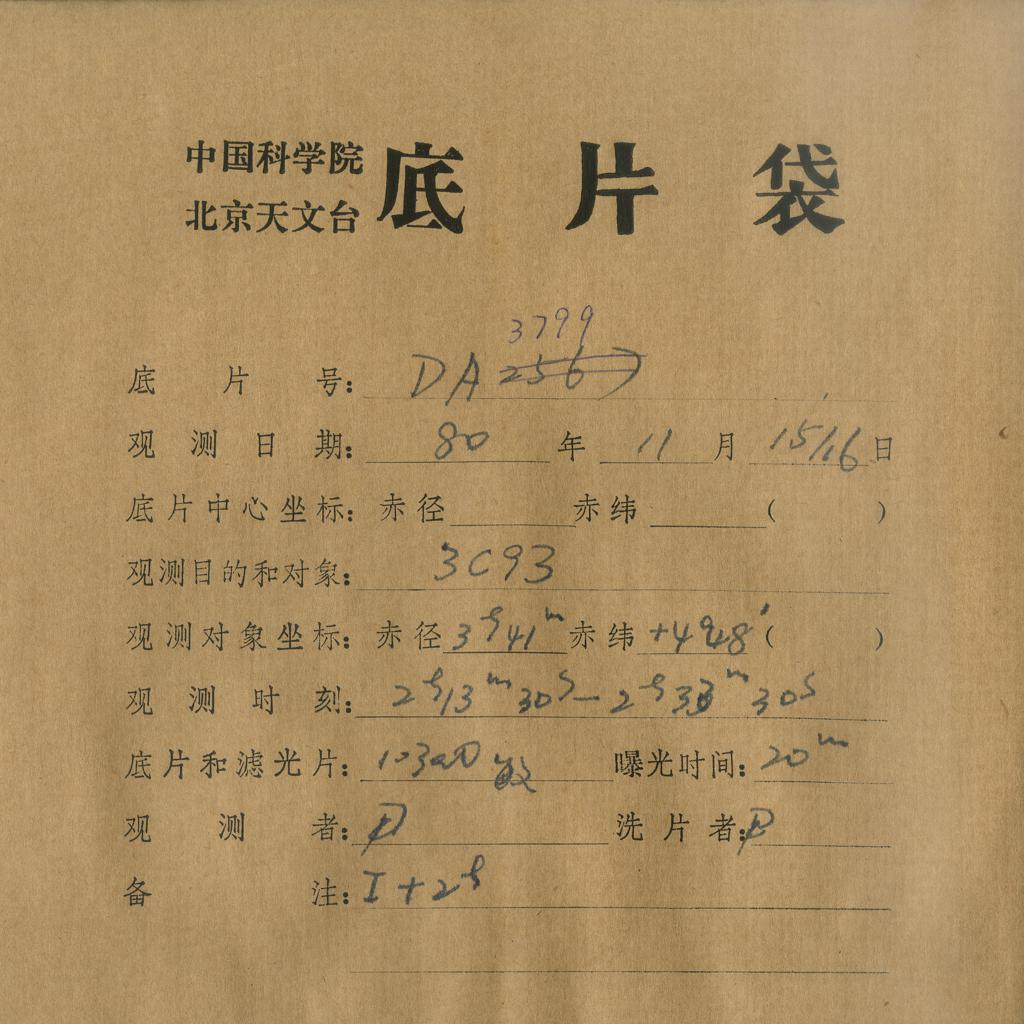 中国科学院
北京天文台
底片袋
3799
底片号: DA 2567
观测日期: 80 年 11 月 15/16 日
底片中心坐标: 赤径 赤纬 ( )
观测目的和对象: 3C93
观测对象坐标: 赤径 3h41m 赤纬 +4°48' ( )
观测时刻: 2h13m30s—2h33m30s
底片和滤光片: 103aD 敏 曝光时间: 20m
观测者: 洗片者:
备注: I+2h